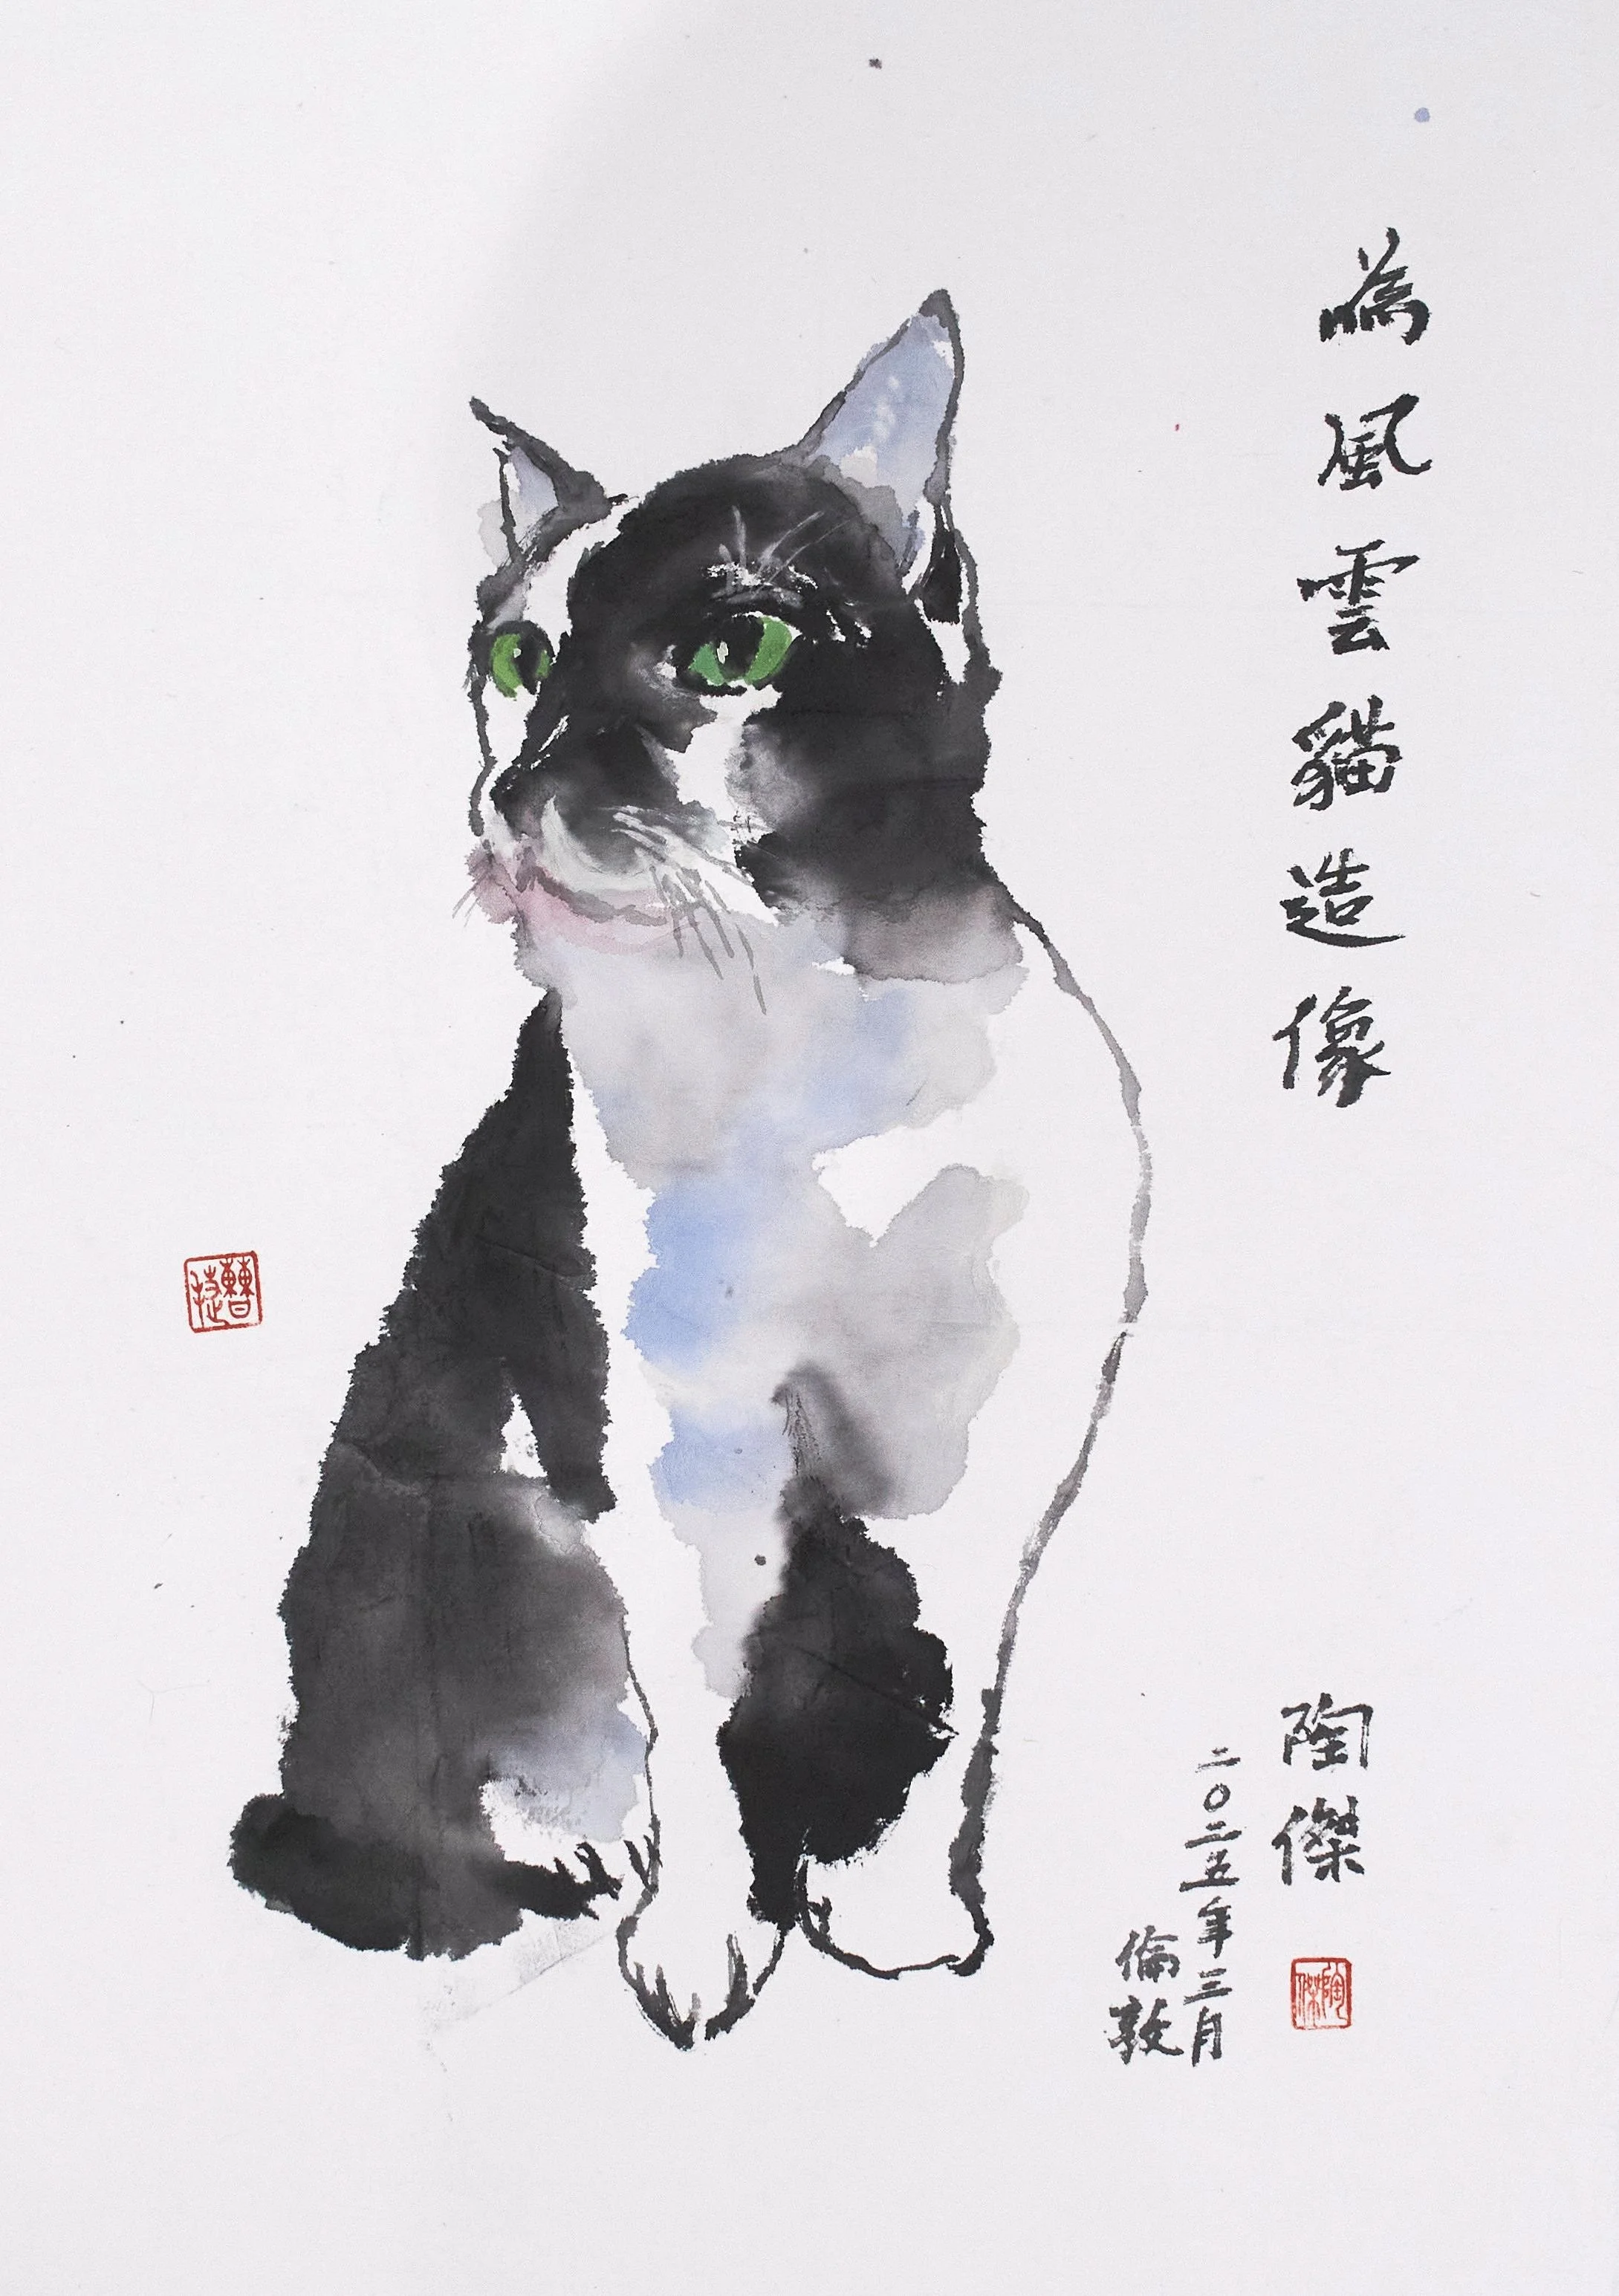 為風雲貓造像
陶傑
二〇二五年三月
倫敦
陶傑
曹捷